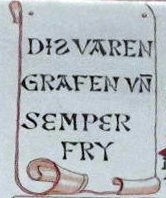 DIS VAREN
GRAFEN VN̄
SEMPER
FRY